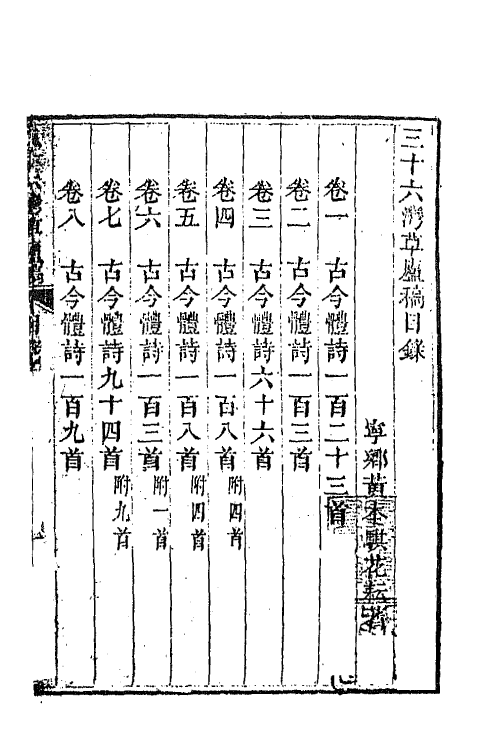 三十六灣草廬稿目錄
寧鄉黃本騏花耘著
卷一　古今體詩一百二十三首
卷二　古今體詩一百三首
卷三　古今體詩六十六首
卷四　古今體詩一百八首附四首
卷五　古今體詩一百八首附四首
卷六　古今體詩一百三首附一首
卷七　古今體詩九十四首附九首
卷八　古今體詩一百九首